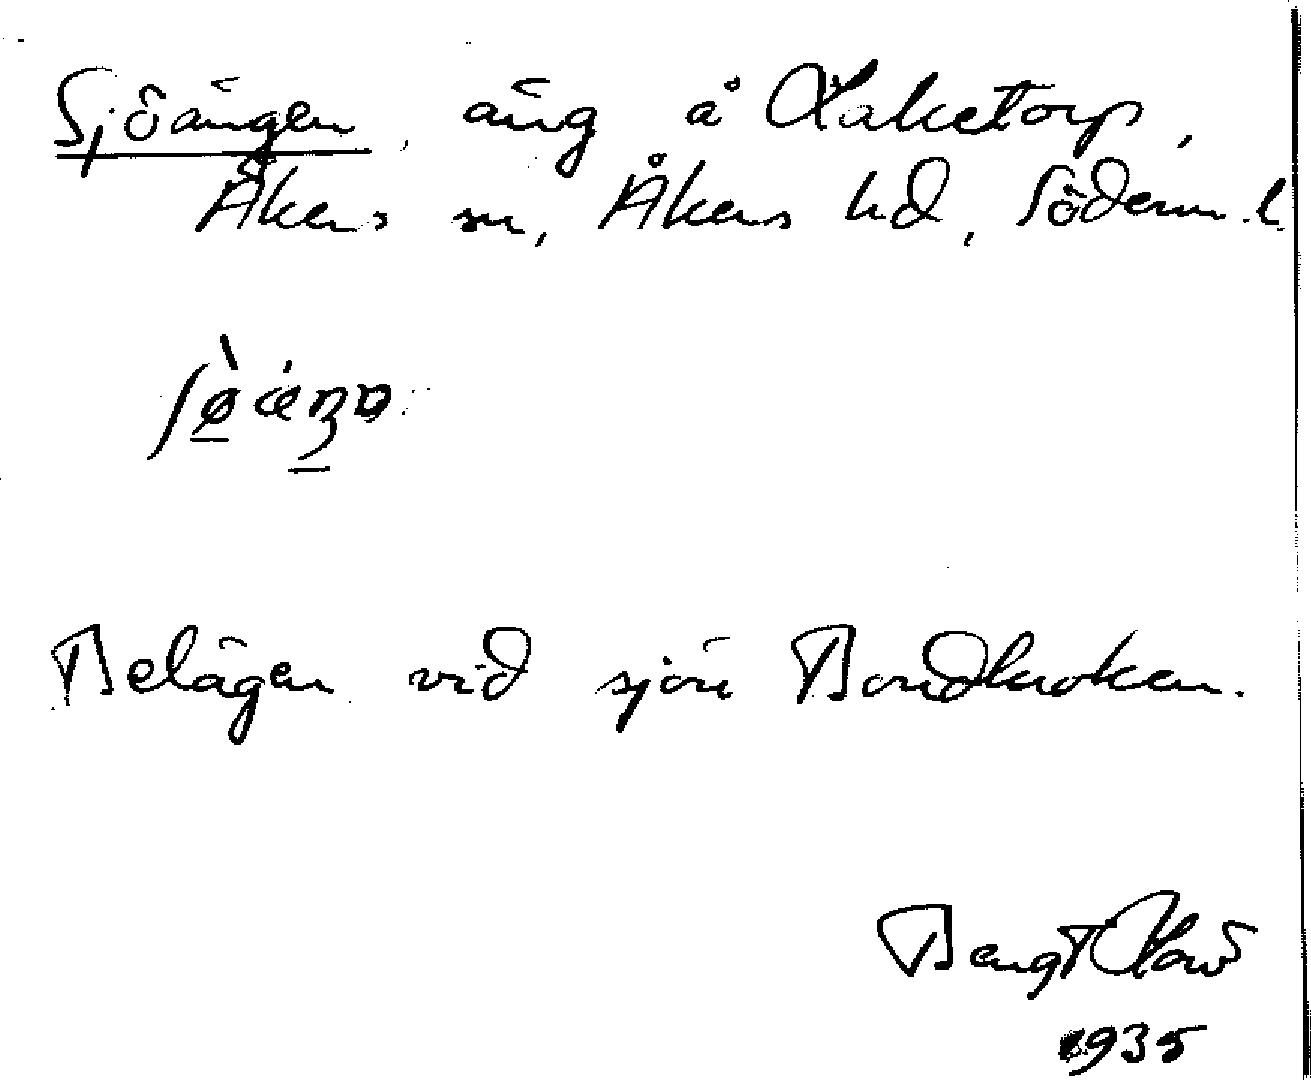 Sjöängen, äng å Läketorp,
Åkers sn, Åkers hd, Söderm. l.
Belägen vid sjön Bondkroken.
Bengt
1935